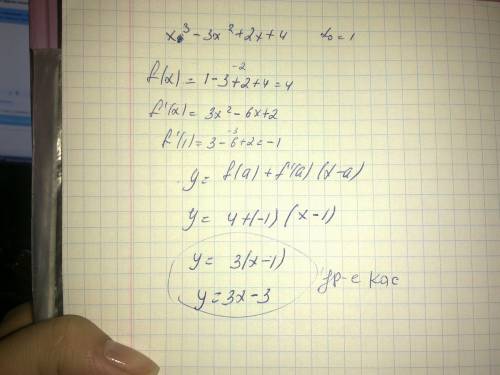 x³-3x²+2x+4 x₀=1
-2
f(x)=1-3+2+4=4
f'(x)=3x²-6x+2
-3
f'(1)=3-6+2=-1
y= f(a)+f'(a)(x-a)
y= 4+(-1)(x-1)
y= 3(x-1)
y=3x-3 ур-е кас